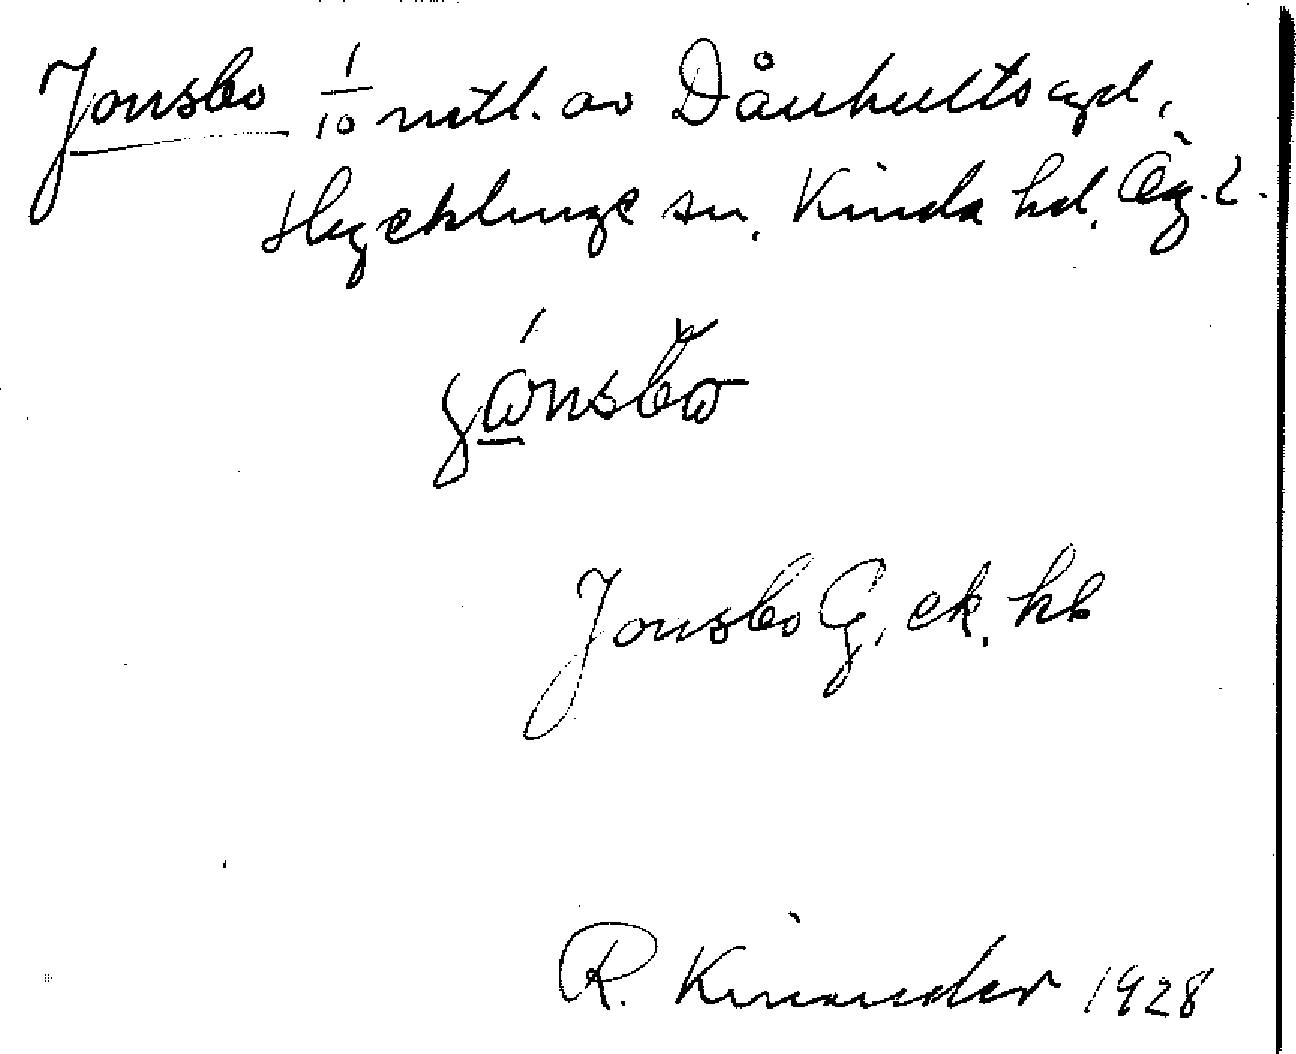 Jonsbo 1/10 mtl. av Dånhults egd,
Hycklinge sn. Kinda hd. Ög. l.
Jonsbo G, ek. kb
R. Kinander 1928